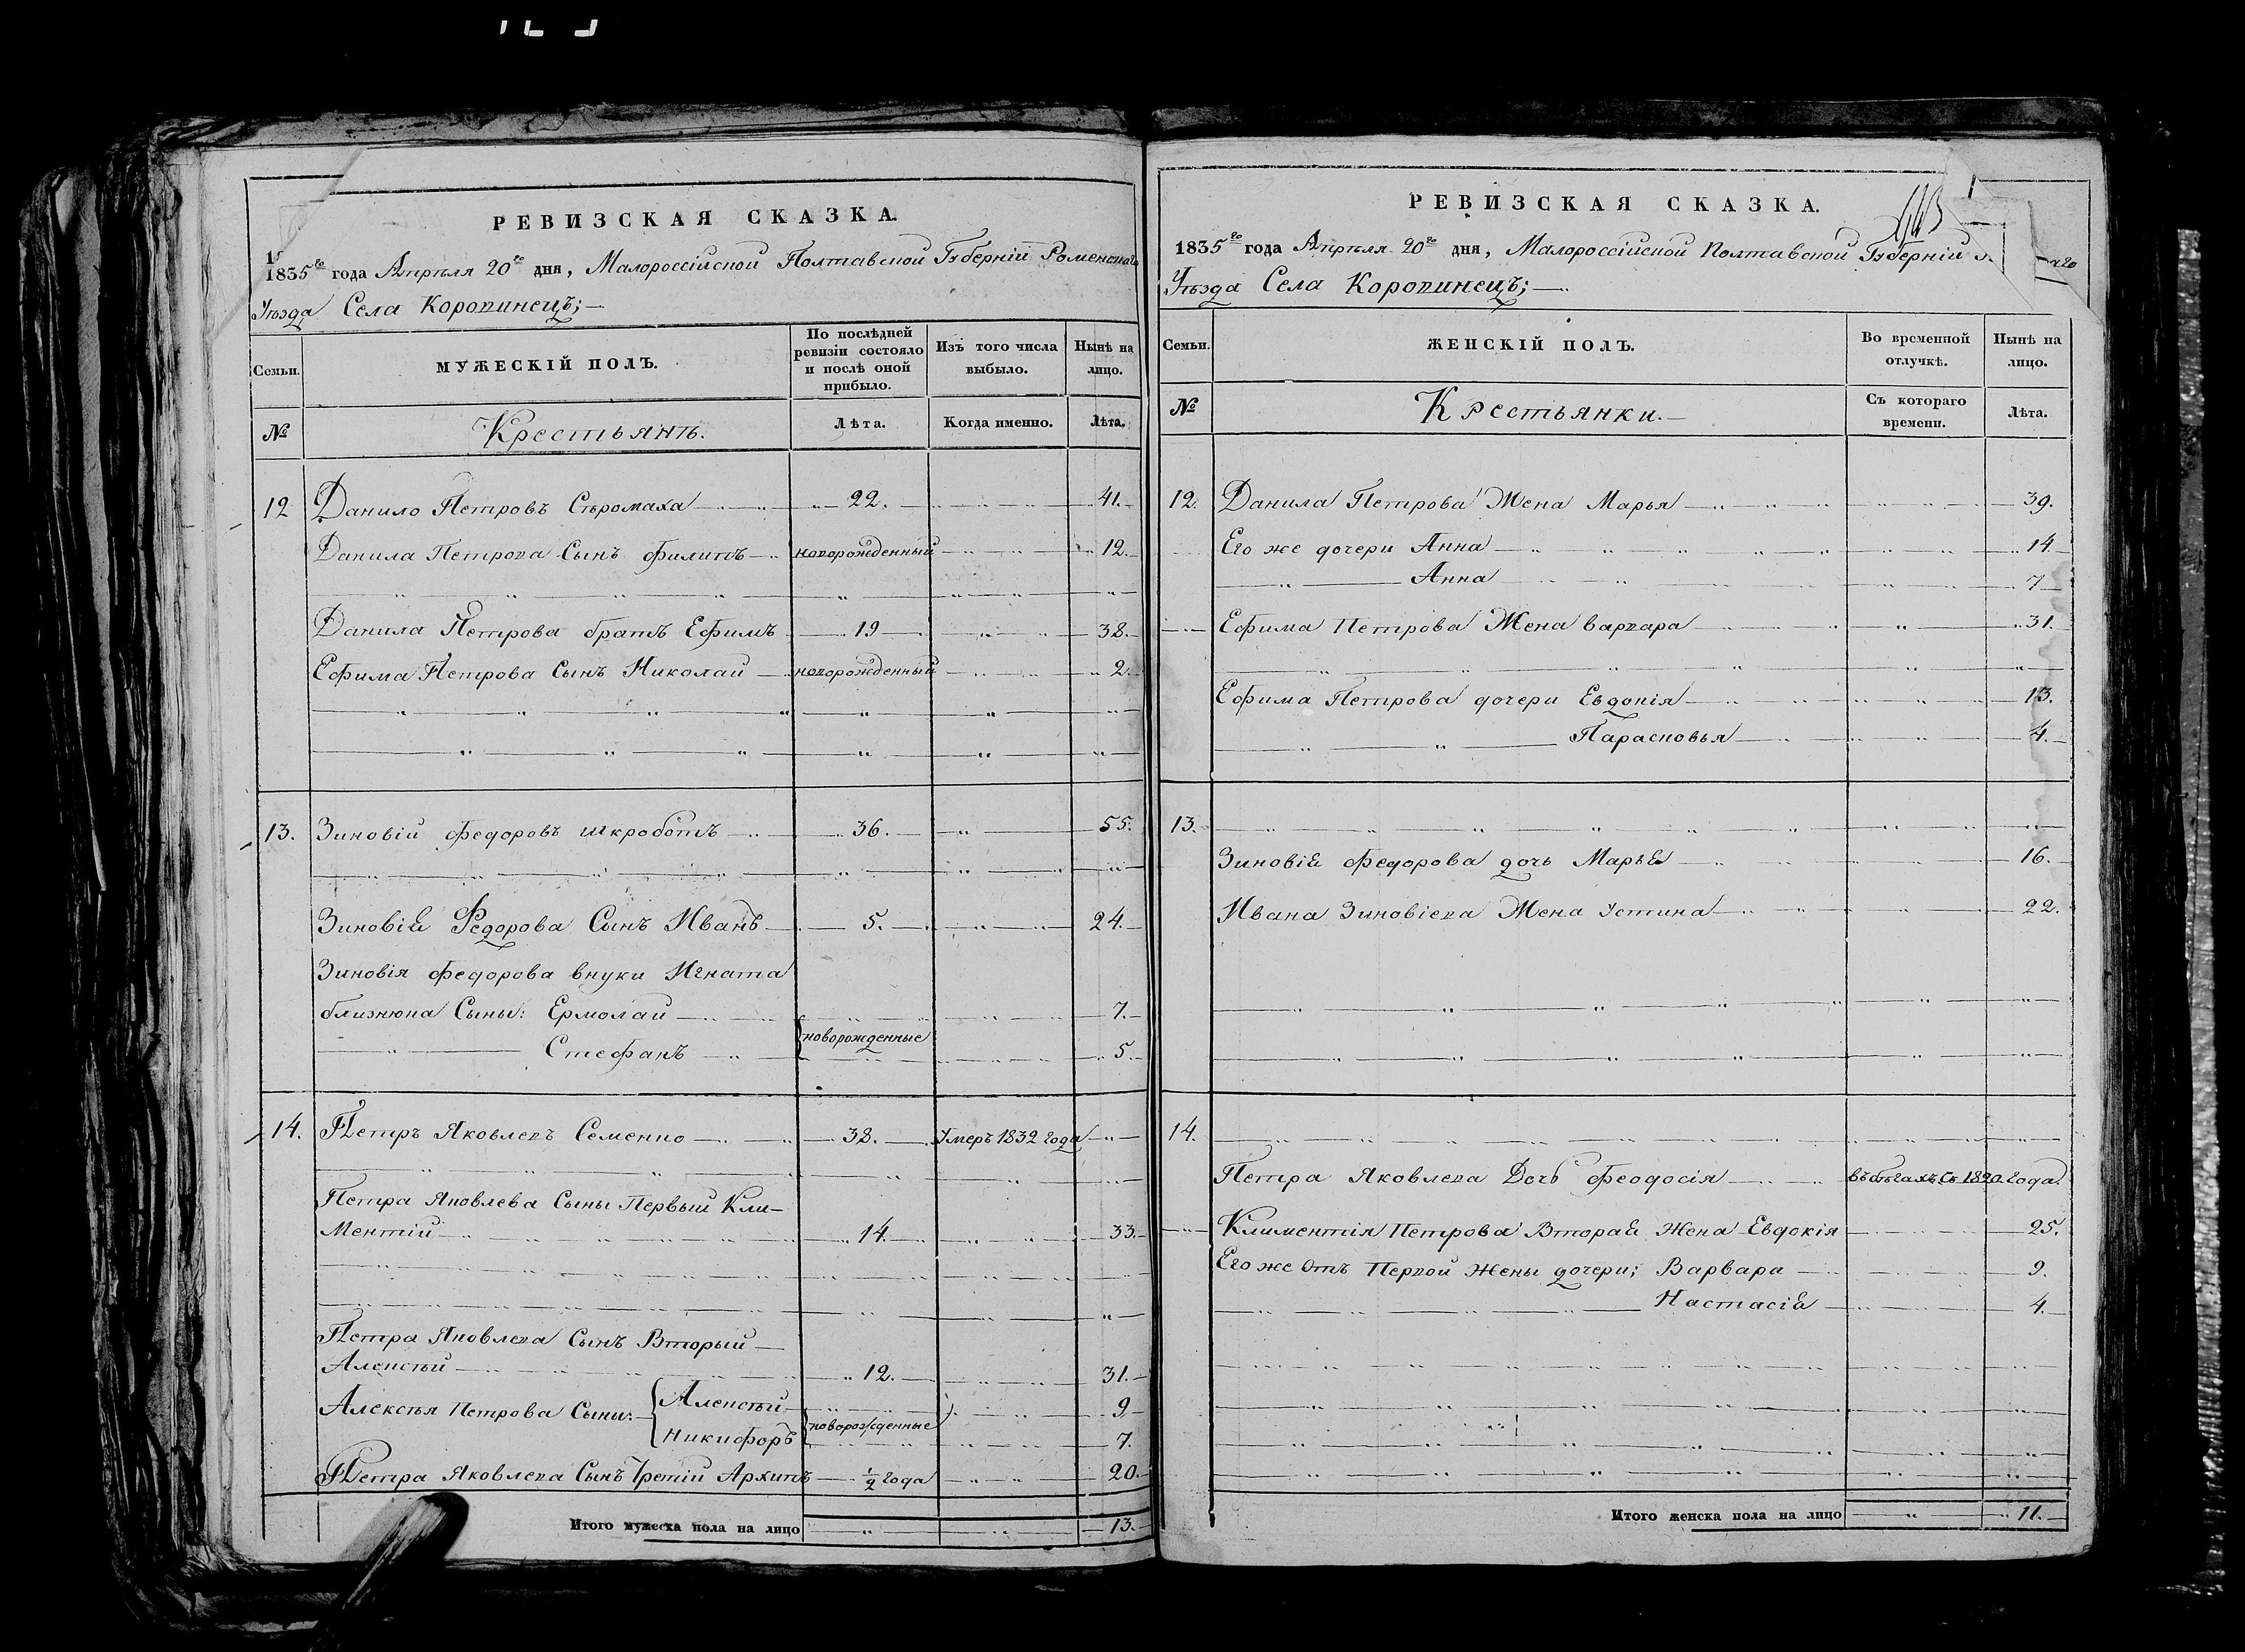 РЕВИЗСКАЯ СКАЗКА.
1835го года Апрѣля 20го дня, Малороссійской Полтавской Губерніи Роменскаго
Уѣзда Села Коровинецъ;
Семьи.
МУЖЕСКІЙ ПОЛЪ.
По послѣдней ревизіи состояло и послѣ оной прибыло.
Изъ того числа выбыло.
Нынѣ на лицо.
№
Крестьянъ.
Лѣта.
Когда именно.
Лѣта.
12 Данило Петровъ Сѣромаха 22. 41.
Данила Петрова Сынъ Филипъ новорожденный 12.
Данила Петрова братъ Ефимъ 19 38.
Ефима Петрова Сынъ Николай новорожденный 2.
13. Зиновій Федоровъ Шкроботъ 36. 55.
Зиновія Федорова Сынъ Иванъ 5. 24.
Зиновія Федорова внуки Игната
близнюка Сыны: Ермолай 7.
новорожденные
Стефанъ 5.
14. Петръ Яковлевъ Семенко 38. Умеръ 1832 года
Петра Яковлева Сыны Первый Кли-
ментій 14. 33.
Петра Яковлева Сынъ Вторый
Алексѣй 12. 31.
Алексѣя Петрова Сыны: Алексѣй 9
новорожденные
Никифоръ 7.
Петра Яковлева Сынъ Третій Архипъ 1/2 года 20.
Итого мужеска пола на лицо 13.
РЕВИЗСКАЯ СКАЗКА.
1835го года Апрѣля 20го дня, Малороссійской Полтавской Губерніи
Уѣзда Села Коровинецъ;
Семьи.
ЖЕНСКІЙ ПОЛЪ.
Во временной отлучкѣ.
Нынѣ на лицо.
№
Крестьянки.
Съ котораго времени.
Лѣта.
12. Данила Петрова Жена Марья 39.
Его же дочери Анна 14
Анна 7
Ефима Петрова Жена Варвара 31.
Ефима Петрова дочери Евдокія 13.
Парасковья 4.
13.
Зиновія Федорова дочь Марья 16.
Ивана Зиновіева Жена Устина 22.
14.
Петра Яковлева Дочь Феодосія въ бѣгахъ съ 1820 года.
Климентія Петрова Вторая Жена Евдокія 25.
Его же Отъ Первой Жены дочери; Варвара 9.
Настасія 4.
Итого женска пола на лицо 11.